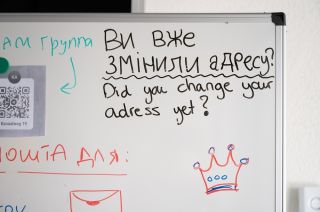 АМ ГРУППА
ВИ ВЖЕ
ЗМІНИЛИ АДРЕСУ?
Did you change your
adress yet?
ОШТА ДЛЯ: